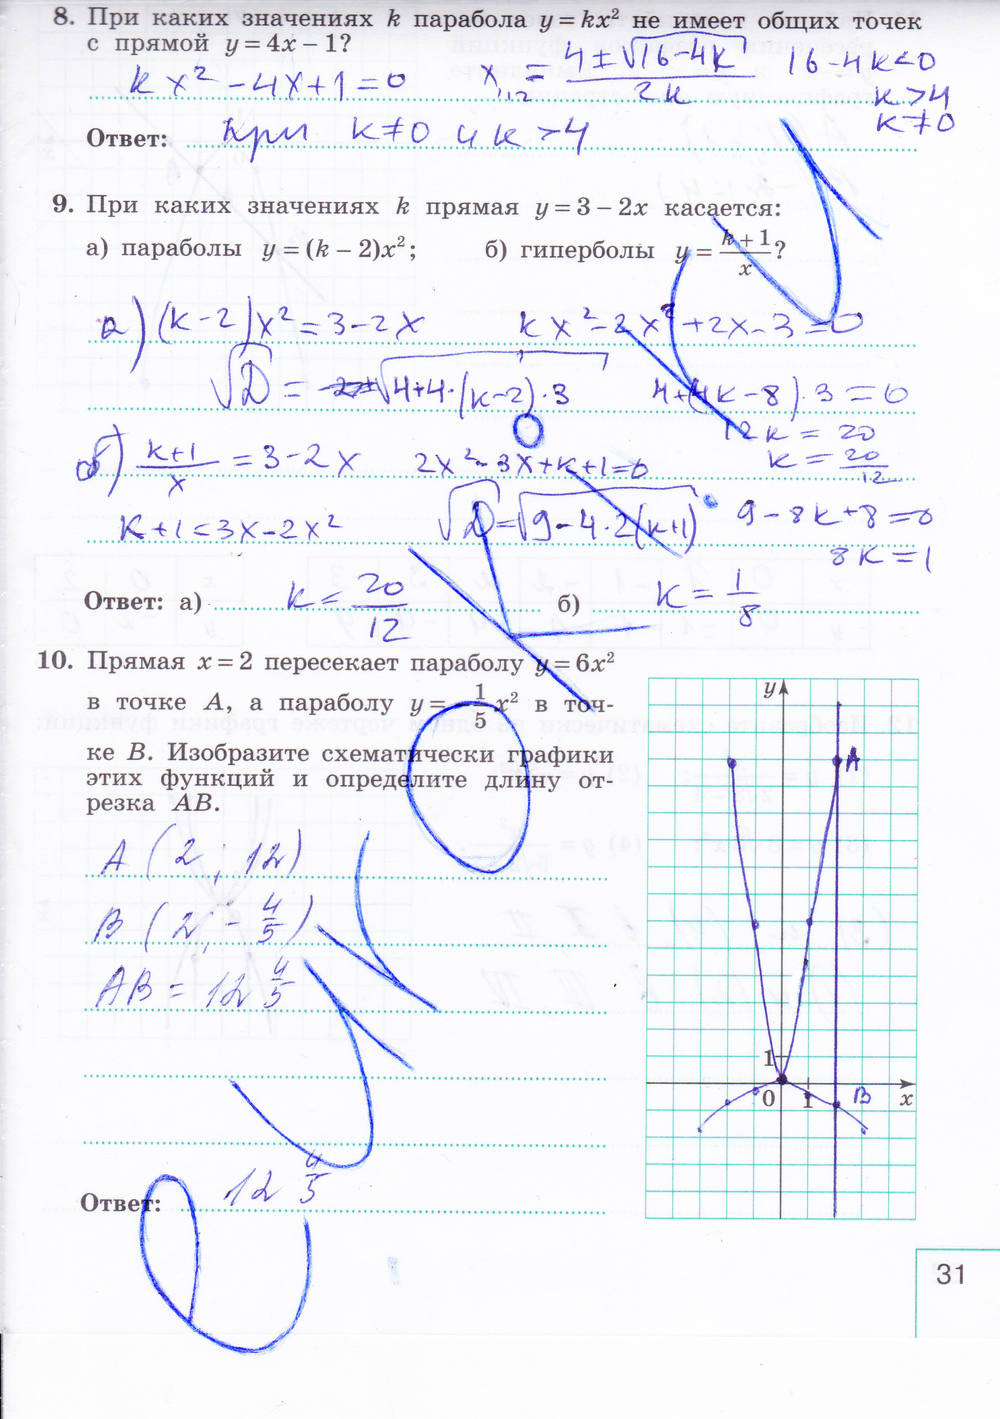 8. При каких значениях k парабола y = kx² не имеет общих точек
с прямой y = 4x − 1?
kx² − 4x + 1 = 0   x₁,₂ = (4 ± √(16 − 4k)) / 2k   16 − 4k < 0
k > 4
k ≠ 0
Ответ: при k ≠ 0 и k > 4
9. При каких значениях k прямая y = 3 − 2x касается:
а) параболы y = (k − 2)x²;   б) гиперболы y = (k + 1)/x?
а) (k − 2)x² = 3 − 2x   kx² − 2x² + 2x − 3 = 0
√D = √(4 + 4·(k − 2)·3)   4 + (4k − 8)·3 = 0
12k = 20
k = 20/12
б) (k + 1)/x = 3 − 2x   2x² − 3x + k + 1 = 0
k + 1 = 3x − 2x²   √D = √(9 − 4·2(k + 1))   9 − 8k + 8 = 0
8k = 1
Ответ: а) k = 20/12   б) k = 1/8
10. Прямая x = 2 пересекает параболу y = 6x²
в точке A, а параболу y = − 1/5 x² в точ-
ке B. Изобразите схематически графики
этих функций и определите длину от-
резка AB.
A (2 ; 12)
B (2 ; − 4/5)
AB = 12 4/5
Ответ: 12 4/5
y
A
1
0 1 B x
31